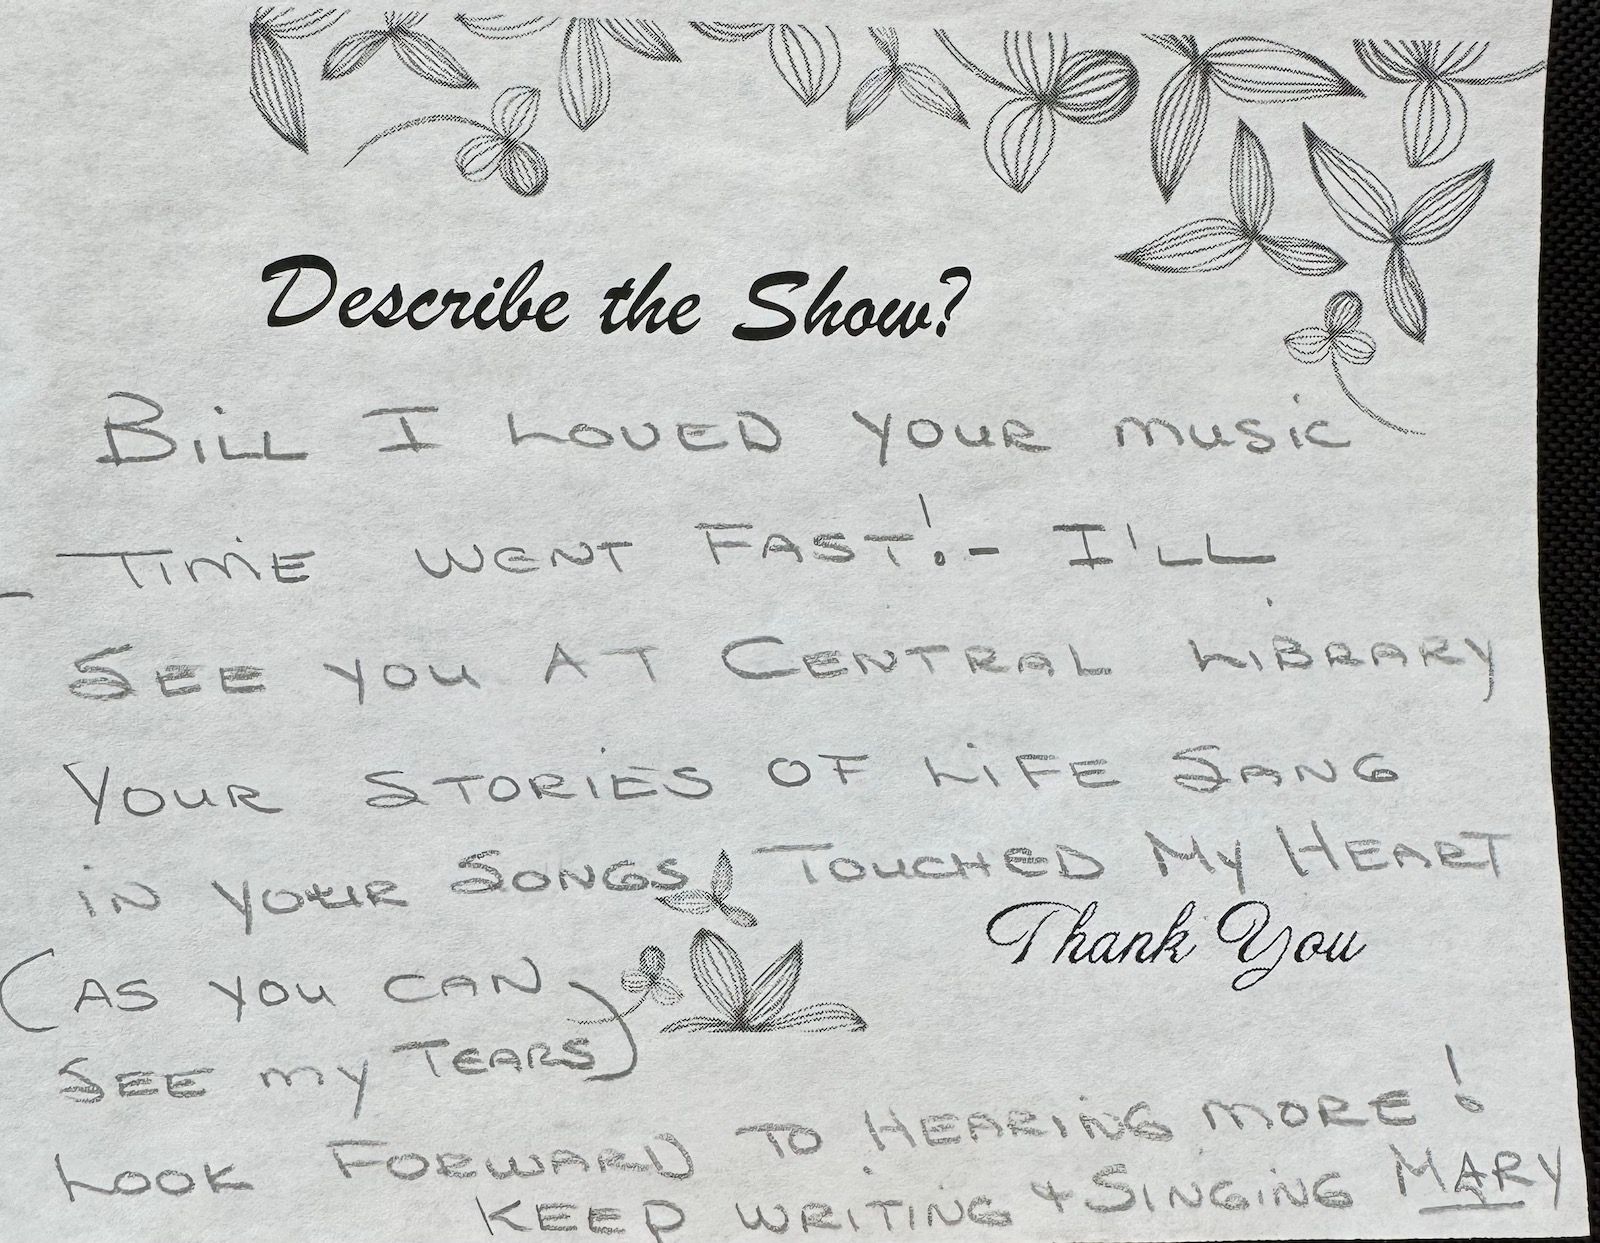 Describe the Show?
BiLL I LOVED YOUR music
- TiME WENT FAST! - I'LL
SEE YOU AT CENTRAL LiBRARY
YOUR STORiES OF LiFE SANG
iN YOUR SONGS, TOUCHED MY HEART
Thank You
(AS YOU CAN
SEE MY TEARS)
LOOK FORWARD TO HEARiNG MORE!
KEEP WRiTiNG & SiNGiNG MARY